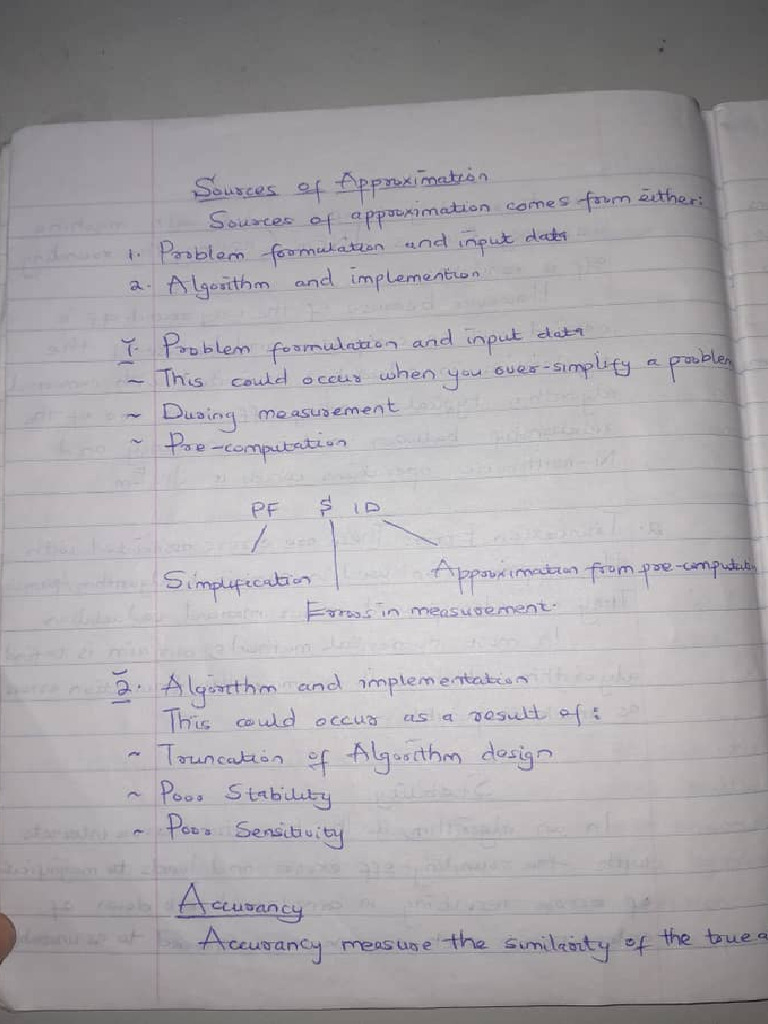 Sources of Approximation
Sources of approximation comes from either:
1. Problem formulation and input data
2. Algorithm and implemention
1. Problem formulation and input data
~ This could occur when you over-simplify a problem
~ During measurement
~ Pre-computation
PF $ ID
Simplification Approximation from pre-computation
Errors in measurement.
2. Algorithm and implementation
This could occur as a result of:
~ Truncation of Algorithm design
~ Poor Stability
~ Poor Sensitivity
Accurancy
Accurancy measure the similarity of the true